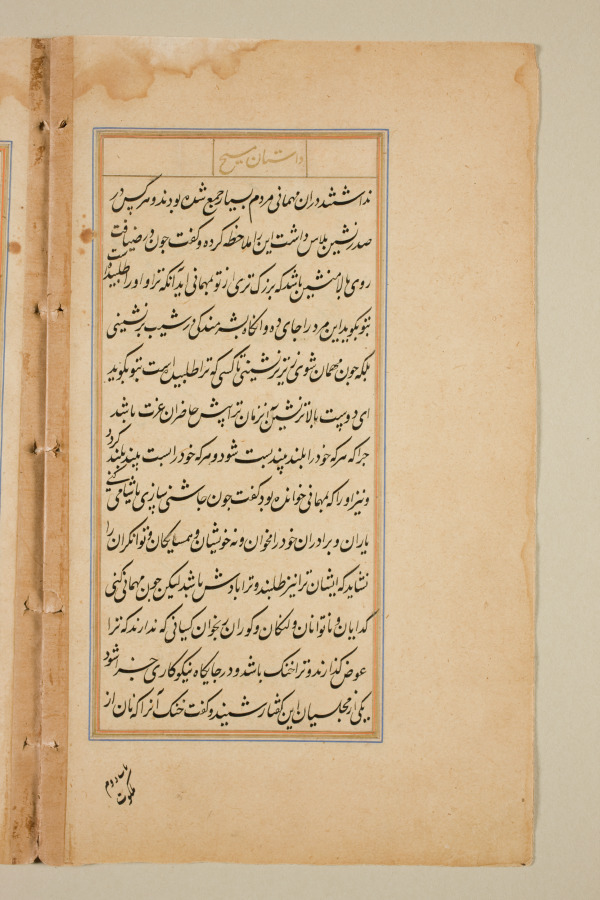 داستان مسیح
نداشتند دران مهمانی مردم بسیار جمع شده بودند و هر کس در
صدر نشین پلاس داشت این را ملاحظه کرده و گفت چون در ضیافت
روی بالا منشین باشد که بزرک تری از تو بمهمانی اید آنکه ترا و او را طلبیده است
بتو بکوید این مرد را جای ده و انکاه بشرمندکی در شیب بر نشینی
بلکه چون مهمان شوی زیرتر نشین تا کسی که ترا طلبیده است بتو بکوید
ای دوست بالاتر نشین آنزمان ترا پیش حاضران عزت باشد
چرا که هر که خود را بلند بیند پست شود و هر که خود را پست بیند بلند کردد
و نیز او را که بمهمانی خوانده بود گفت چون چاشتی سازی یا شامی کنی
یاران و برادران خود را مخوان و نه خویشان و همسایکان و توانکران را
نشاید که ایشان ترا نیز طلبند و ترا پاداش باشد لیکن چون مهمانی کنی
کدایان و ناتوانان و لنکان و کوران بخوان کسانی که ندارند که ترا
عوض کذارند و ترا خنک باشد و در جایکاه نیکوکاری جزا شود
یکی از مجلسیان این کفتار شنید و گفت خنک آنرا که نان از
باب دوم
ملکوت